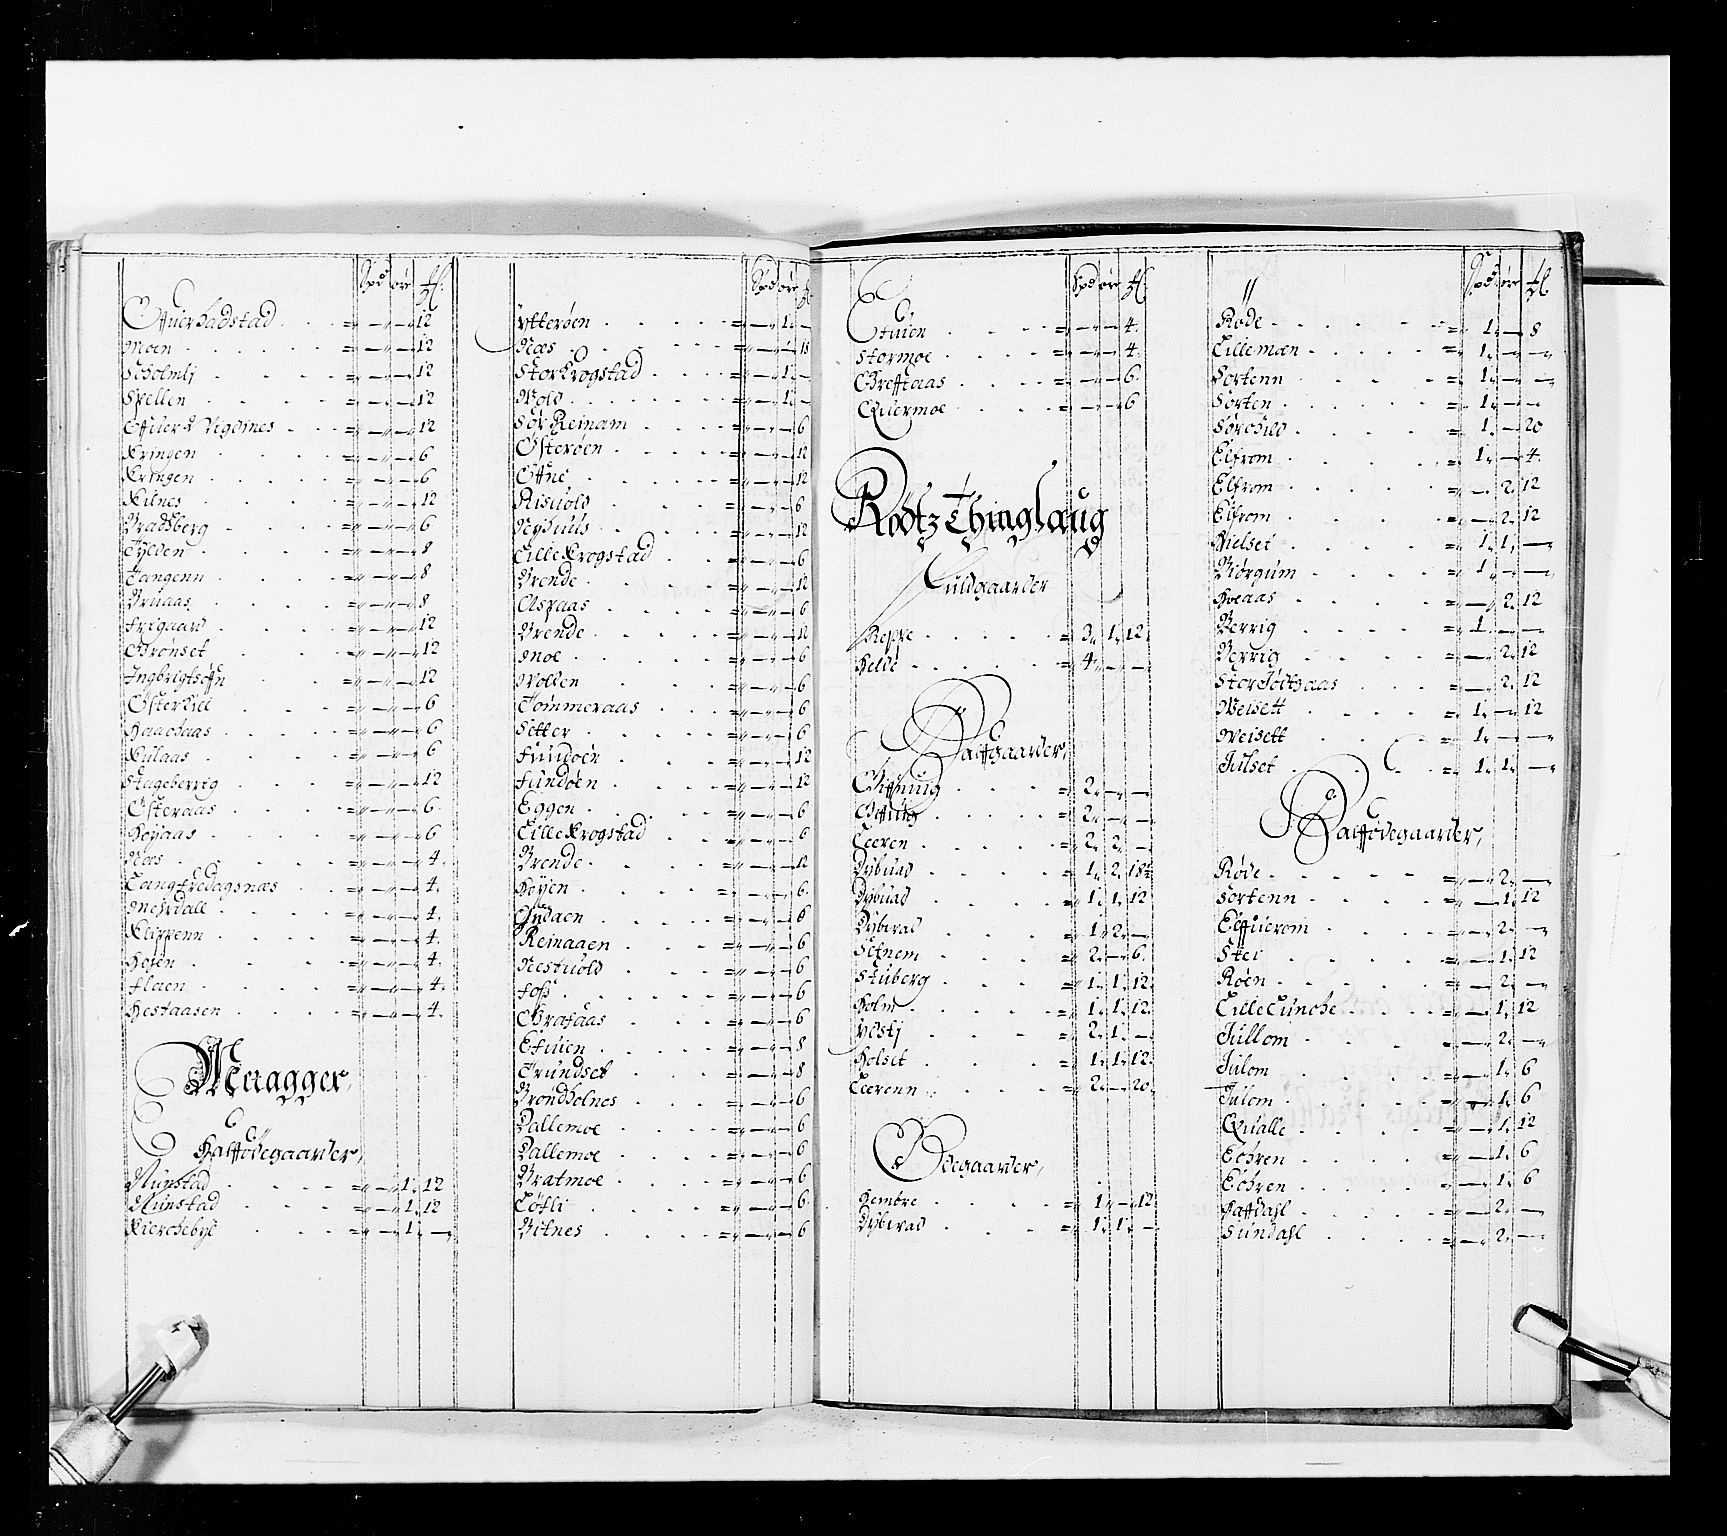 Spd øre ₰.
Offuerhadstad - - - 12
Moen - - - 12
Scholmlj - - - 12
Spellen - - - 12
Offuer Vigdnes - - - 12
Kringen - - - 6
Kringen - - - 6
Kilnes - - - 12
Bradsberg - - - 6
Tylden - - - 8
Tangenn - - - 8
Bruaas - - - 8
Frigaard - - - 12
Grønset - - - 12
Ingbrigtsøn - - - 12
Østerlie - - - 6
Haachaas - - - 6
Kulaas - - - 6
Stageberrig - - - 12
Østeraas - - - 6
Høyaas - - - 6
Næs - - - 4.
Langfredagsnæs - - - 4.
Mehrdall - - - 4.
Klippenn - - - 4.
Høien - - - 4.
Floen - - - 4.
Hestaasen - - - 4.
Meragger,
Halffødegaarder,
Munstad - - 1. 12
Munstad - - 1. 12
Kierchebye - - 1. -
Spd øre ₰
Ytterøen - - 1. -
Næs - - 1. 18
Storkrogstad - - 1. -
Wold - - 1. -
Sør Reinam - - - 6
Østerøen - - - 12
Offne - - - 12
Risuold - - - 6
Nyhuus - - - 12
LilleKrogstad - - - 6
Brende - - - 12
Aspaas - - - 6
Brende - - - 12
Moe - - - 6
Wollen - - - 6
Tømmeraas - - - 6
Setter - - - 6
Fundoen - - - 12
Fundøen - - - 12
Eggen - - - 6
LilleKrogstad - - - 6
Brende - - - 12
Høyen - - - 6
Reinaaen - - - 6
Nestuold - - - 6
Foss - - - 6
Grafaas - - - 6
Efuien - - - 8
Trundset - - - 8
Brøndholnes - - - 6
Dallemoe - - - 6
Dallemoe - - - 6
Bratmoe - - - 6
Løfli - - - 6
Bitnes - - - 6
Spd øre ₰.
Stuen - - - 4.
Stormoe - - - 4.
Greftaas - - - 6.
Quermoe - - - 6
Rødtz Thinglaug
Fuldgaarder
Reppe - 3. 1. 12.
Helde - 4. - -
Halffgaarder,
Giffuug - 2. - -
Giffuug - 2. - -
Leeren - 2. 2. -
Dybuad - 1. 2. 18
Dybuad - 1. 1. 12
Dybuad - 1. 2. -
Setnem - 2. - 6.
Stuberg - 1. 1. 12.
Holm - 1. 1. 12.
Ydstj - 2. 1. -
Holset - 1. 1. 12.
Leerenn - 2. - 20.
Ødegaarder,
Hembre - 1. - 12
Dybuad - 1. 1. -
Spd øre ₰.
Røde - 1. - 8
Lillemoen - 1. - -
Sortenn - 1. - -
Sorten - 1. - -
Sørchild - 1. - 20
Elfrom - 1. - 4.
Elfrom - - 2. 12
Elfrom - - 2. 12
Vielset - 1. 1. -
Biørgum - 1. - -
Hoeaas - - 2. 12
Berrig - 1. - -
Berrig - - 2. 12
StorJødthaas - - 2. 12
Weisett - 1. - 12
Weisett - 1. - -
Julset - 1. 1. -
Halffødegaarder,
Røde - - 2. -
Sortenn - - 1. 12
Elffuerom - - 2. -
Stei - - 1. 12
Røen - - 2. -
LilleLunche - - 1. 12
Jullom - - 2. -
Julom - - 1. 6
Julom - - 1. 6
Qualle - - 1. 12
Eohren - - 1. 6
Eohren - - 1. 6
Haffdahl - - 2. -
Sundahl - - 2. -